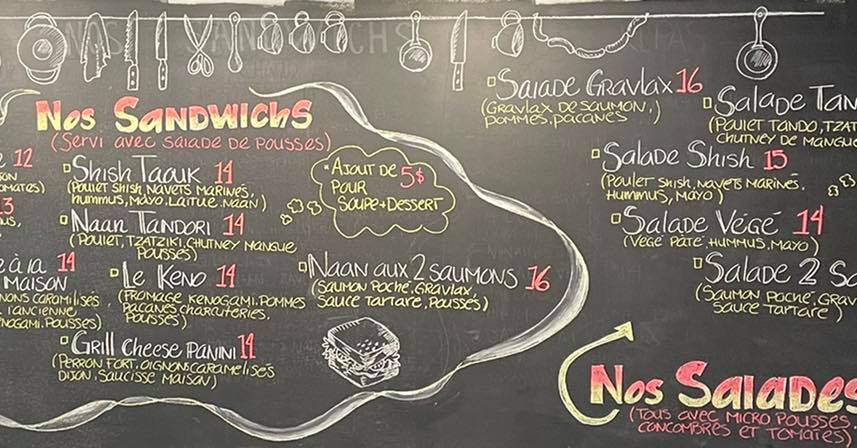 Nos SANDWichS
(Servi avec salade de pousses)
12
OMATES)
13
14
MAISON
NONS CARAMILISÉS
L'ANCIENNE
NOGAMI, POUSSES)
Shish Taouk 14
(Poulet Shish, Navets Marinés,
hummus, Mayo, Laitue, Naan)
Naan Tandori 14
(Poulet, Tzatziki, Chutney Mangue
Pousses)
Le Keno 14
(Fromage Kenogami, Pommes
Pacanes, charcuteries,
Pousses)
Grill Cheese Panini 14
(Perron Fort, Oignons caramelisés
Dijon, Saucisse Maison)
Ajout de 5$
pour
Soupe + Dessert
Naan aux 2 saumons 16
(Saumon Poché, Gravlax,
Sauce tartare, Pousses)
Salade Gravlax 16
(Gravlax de saumon,
pommes, pacanes)
Salade Tan
(Poulet Tando, Tzat
Chutney de Mangue
Salade Shish 15
(Poulet Shish, Navets Marinés,
Hummus, Mayo)
Salade Végé 14
(Végé Pâté, Hummus, Mayo)
Salade 2 Sa
(Saumon poché, Grav
Sauce Tartare)
Nos Salades
(Tous avec micro pousses,
concombres et tomates)